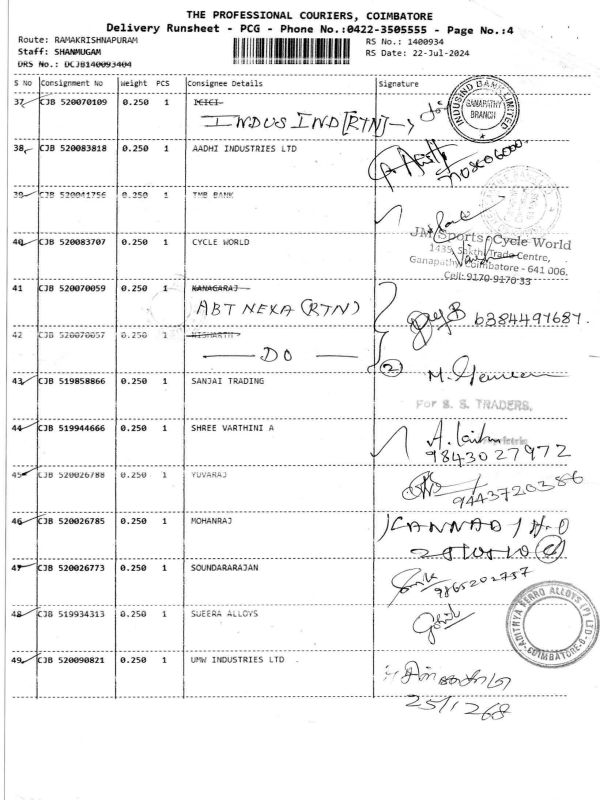 THE PROFESSIONAL COURIERS, COIMBATORE
Delivery Runsheet - PCG - Phone No.:0422-3505555 - Page No.:4
Route: RAMAKRISHNAPURAM RS No.: 1400934
Staff: SHANMUGAM RS Date: 22-Jul-2024
DRS No.: DCJB140093404
S No Consignment No Weight PCS Consignee Details Signature
37 CJB 520070109 0.250 1 ICICI
INDUSIND [RTN]
INDUSIND BANK LIMITED
GANAPATHY
BRANCH
38 CJB 520083818 0.250 1 AADHI INDUSTRIES LTD
39 CJB 520041756 0.250 1 TMB BANK
40 CJB 520083707 0.250 1 CYCLE WORLD
JM Sports Cycle World
1435, Sakthi Trade Centre,
Ganapathy, Coimbatore - 641 006.
Cell: 9170 9170 33
41 CJB 520070059 0.250 1 KANAGARAJ
ABT NEXA (RTN)
6384497687.
42 CJB 520070057 0.250 1 NISHARTH
DO
2
43 CJB 519858866 0.250 1 SANJAI TRADING
For S. S. TRADERS,
44 CJB 519944666 0.250 1 SHREE VARTHINI A
9843027972
45 CJB 520026788 0.250 1 YUVARAJ
9443720386
46 CJB 520026785 0.250 1 MOHANRAJ
47 CJB 520026773 0.250 1 SOUNDARARAJAN
9865202757
48 CJB 519934313 0.250 1 SUEERA ALLOYS
ADITHYA FERRO ALLOYS (P) LTD
COIMBATORE-6
49 CJB 520090821 0.250 1 UMW INDUSTRIES LTD
251268